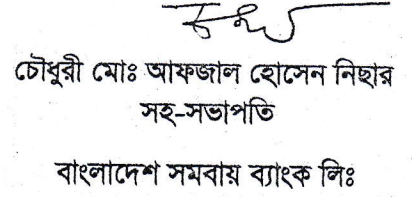 চৌধুরী মোঃ আফজাল হোসেন নিছার
সহ-সভাপতি
বাংলাদেশ সমবায় ব্যাংক লিঃ